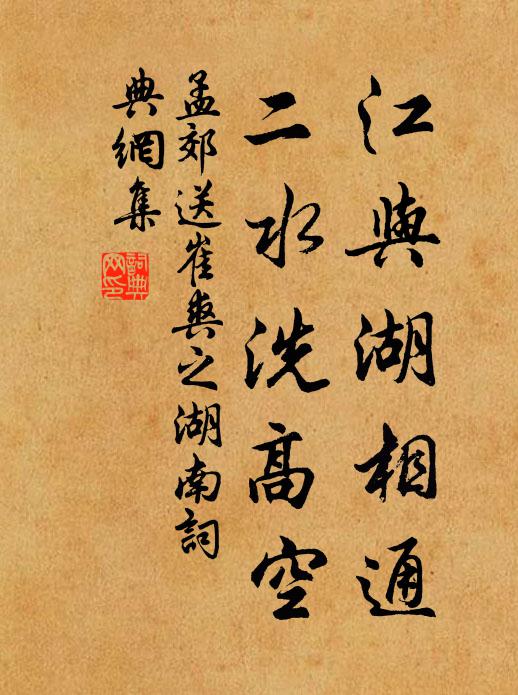 江與湖相通
二水洗高空
孟郊送崔爽之湖南詞
典網集
詞典
网印